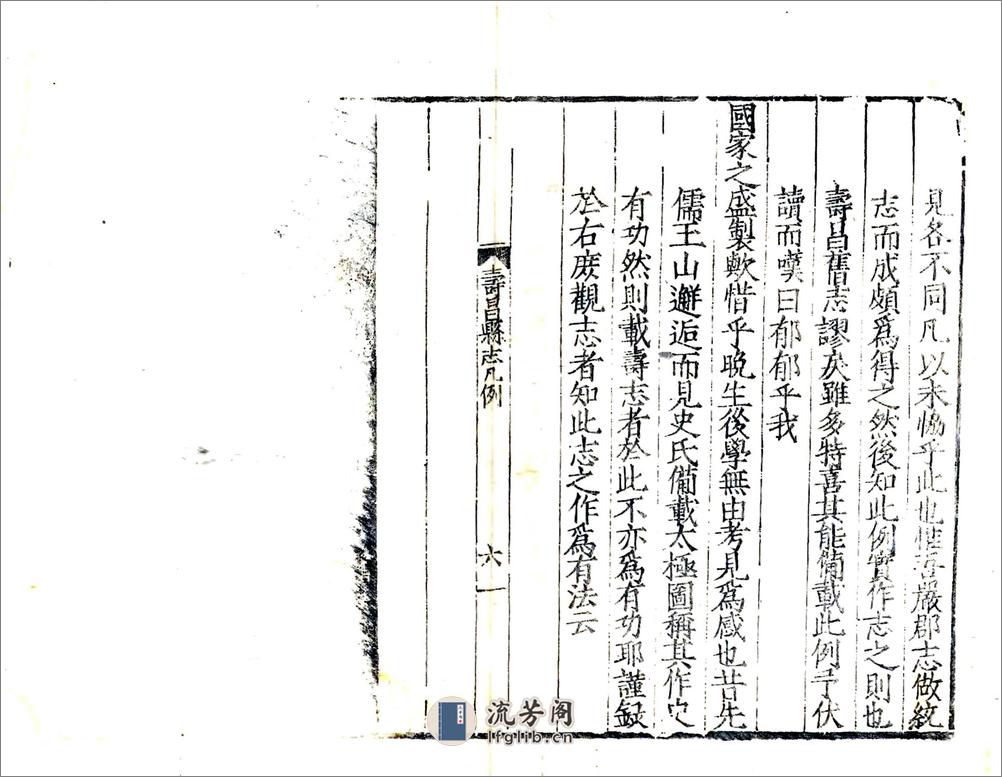 見各不同凡以未惬乎此也惟吾嚴郡志倣統
志而成頗爲得之然後知此例實作志之則也
壽昌舊志謬戾雖多特喜其能備載此例予伏
讀而嘆曰郁郁乎我
國家之盛製歟惜乎晚生後學無由考見爲感也昔先
儒王山邂逅而見史氏備載太極圖稱其作史
有功然則載壽志者於此不亦爲有功耶謹録
於右庻觀志者知此志之作爲有法云
壽昌縣志凡例
六
流芳阁
lfglib.cn